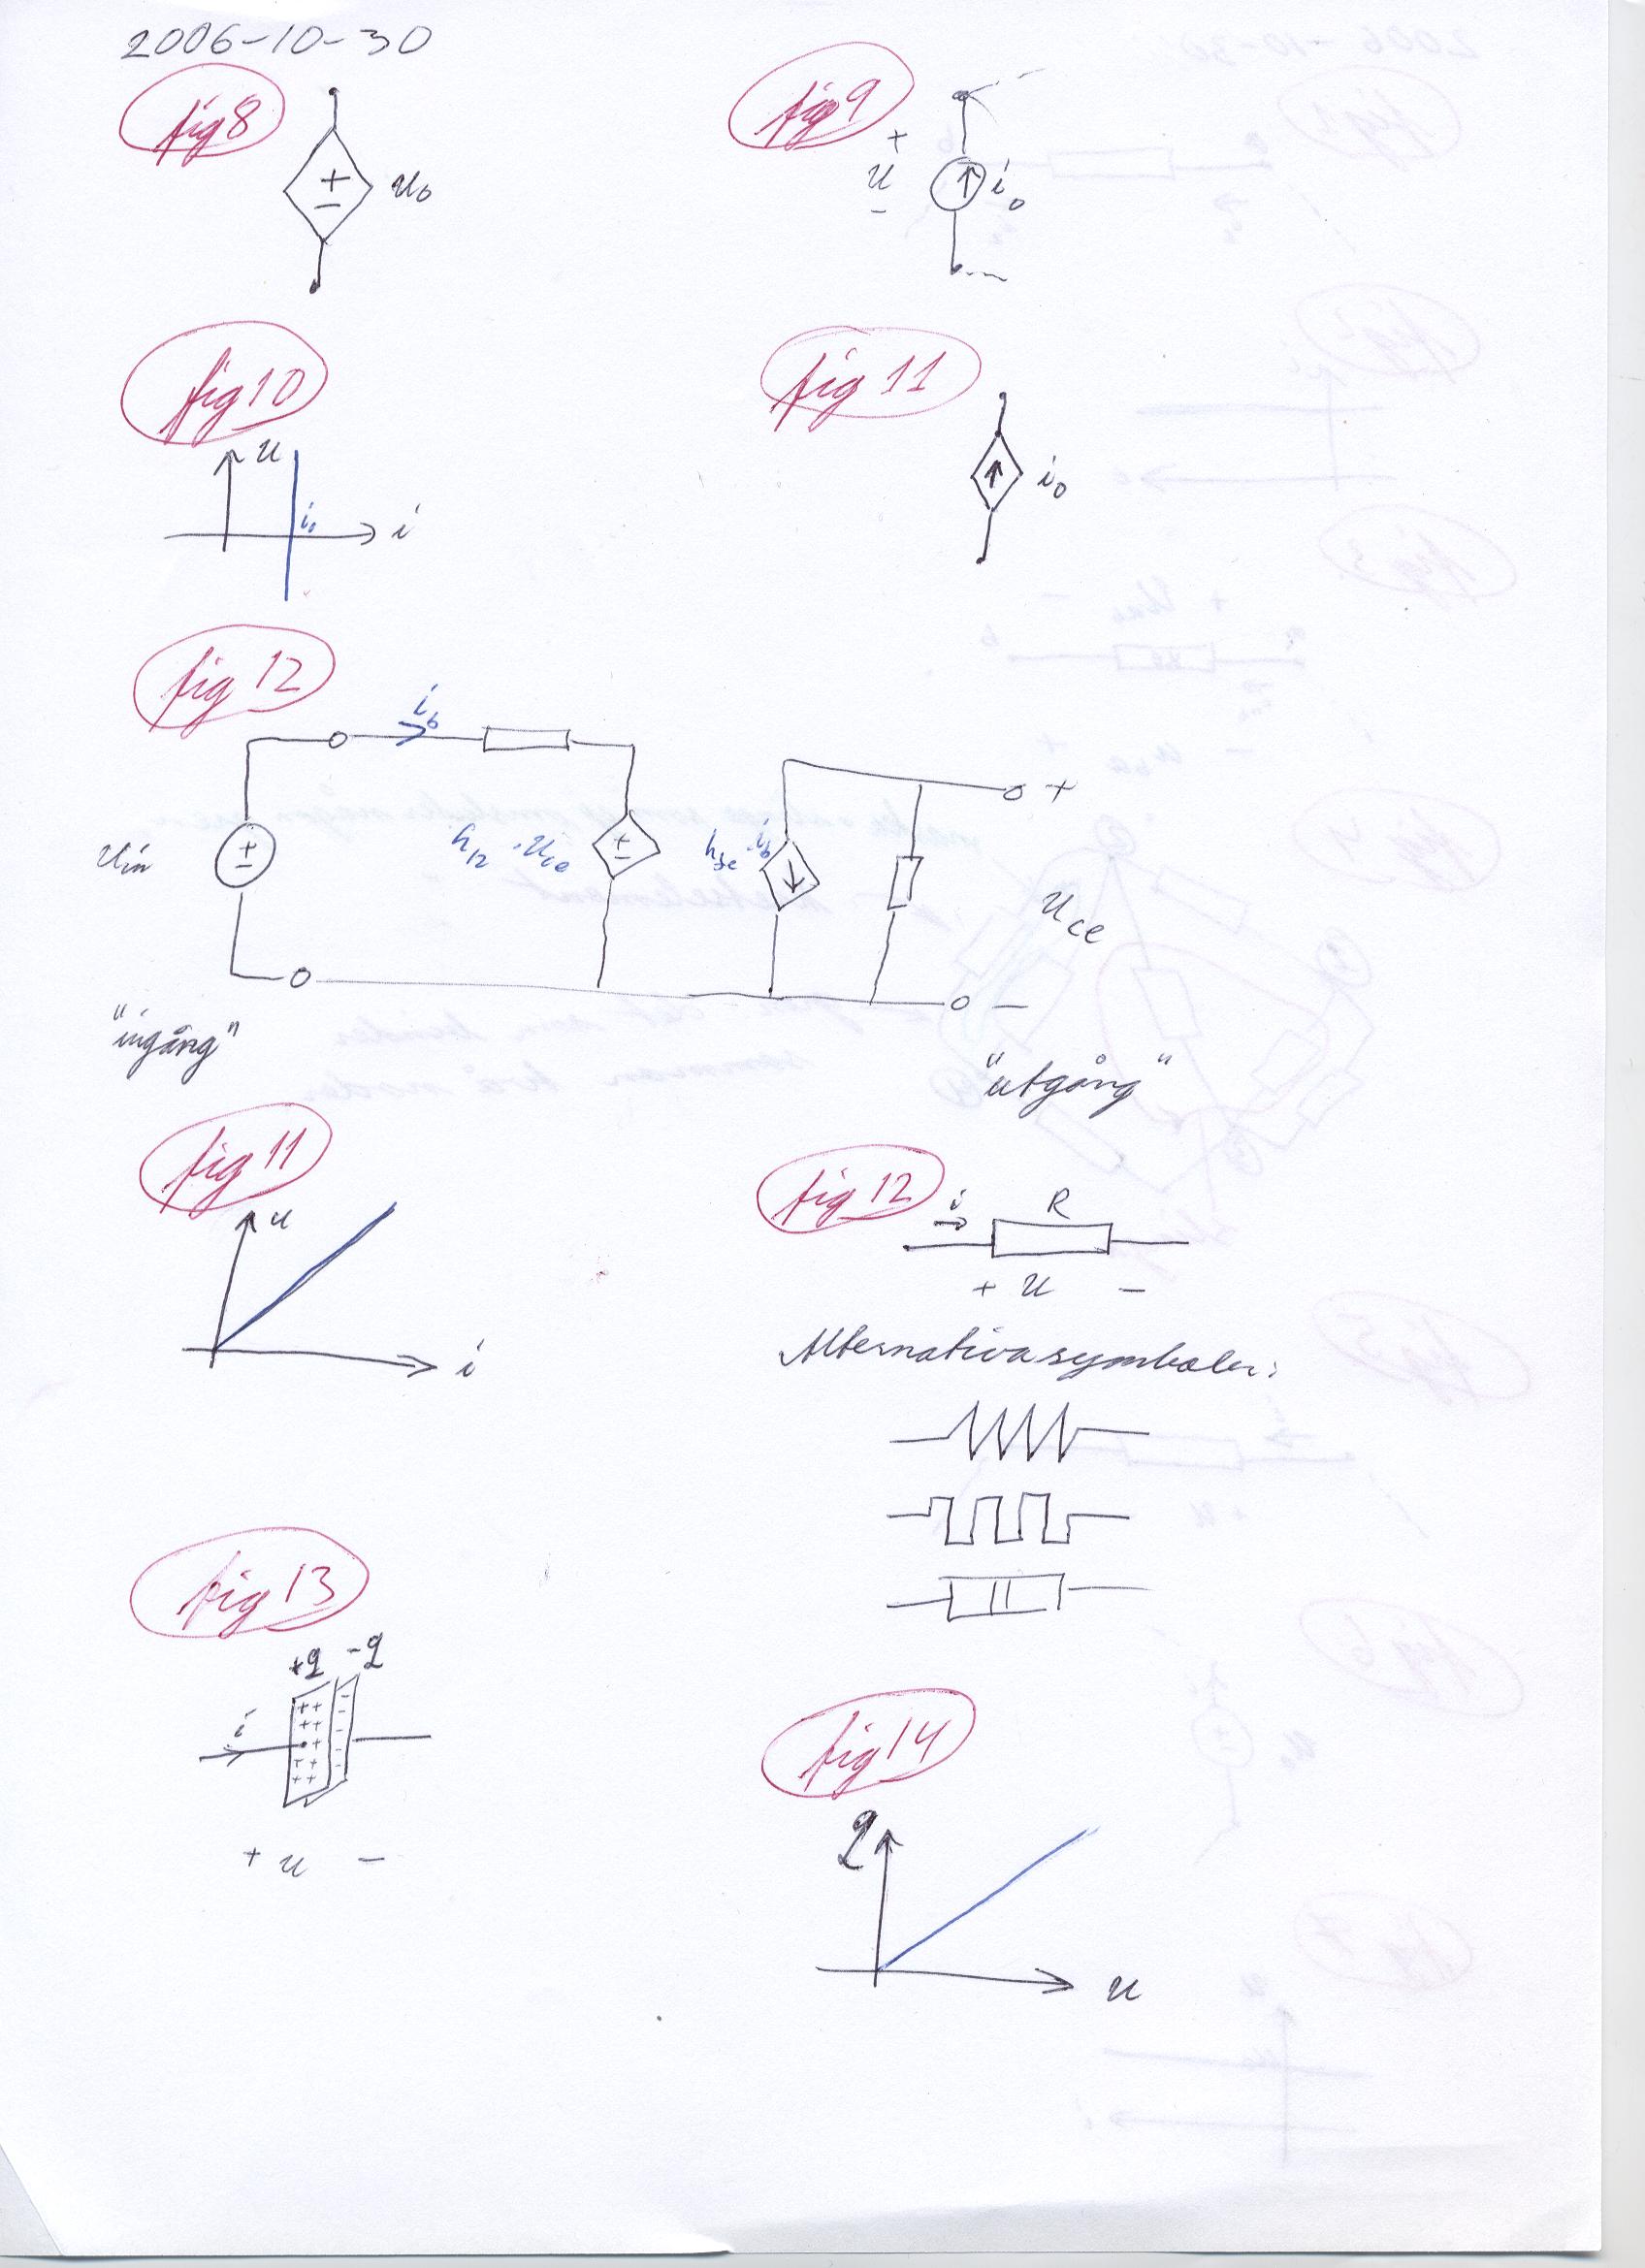 2006-10-30
fig 8
u0
fig 9
+
u
-
i0
fig 10
u
i0
i
fig 11
i0
fig 12
ib
uin
+
-
h12 · uce
+
-
hfe · ib
+
uce
-
"ingång"
"utgång"
fig 11
u
i
fig 12
i
R
+ u -
Alternativa symboler:
fig 13
+q -q
i
+ u -
fig 14
q
u